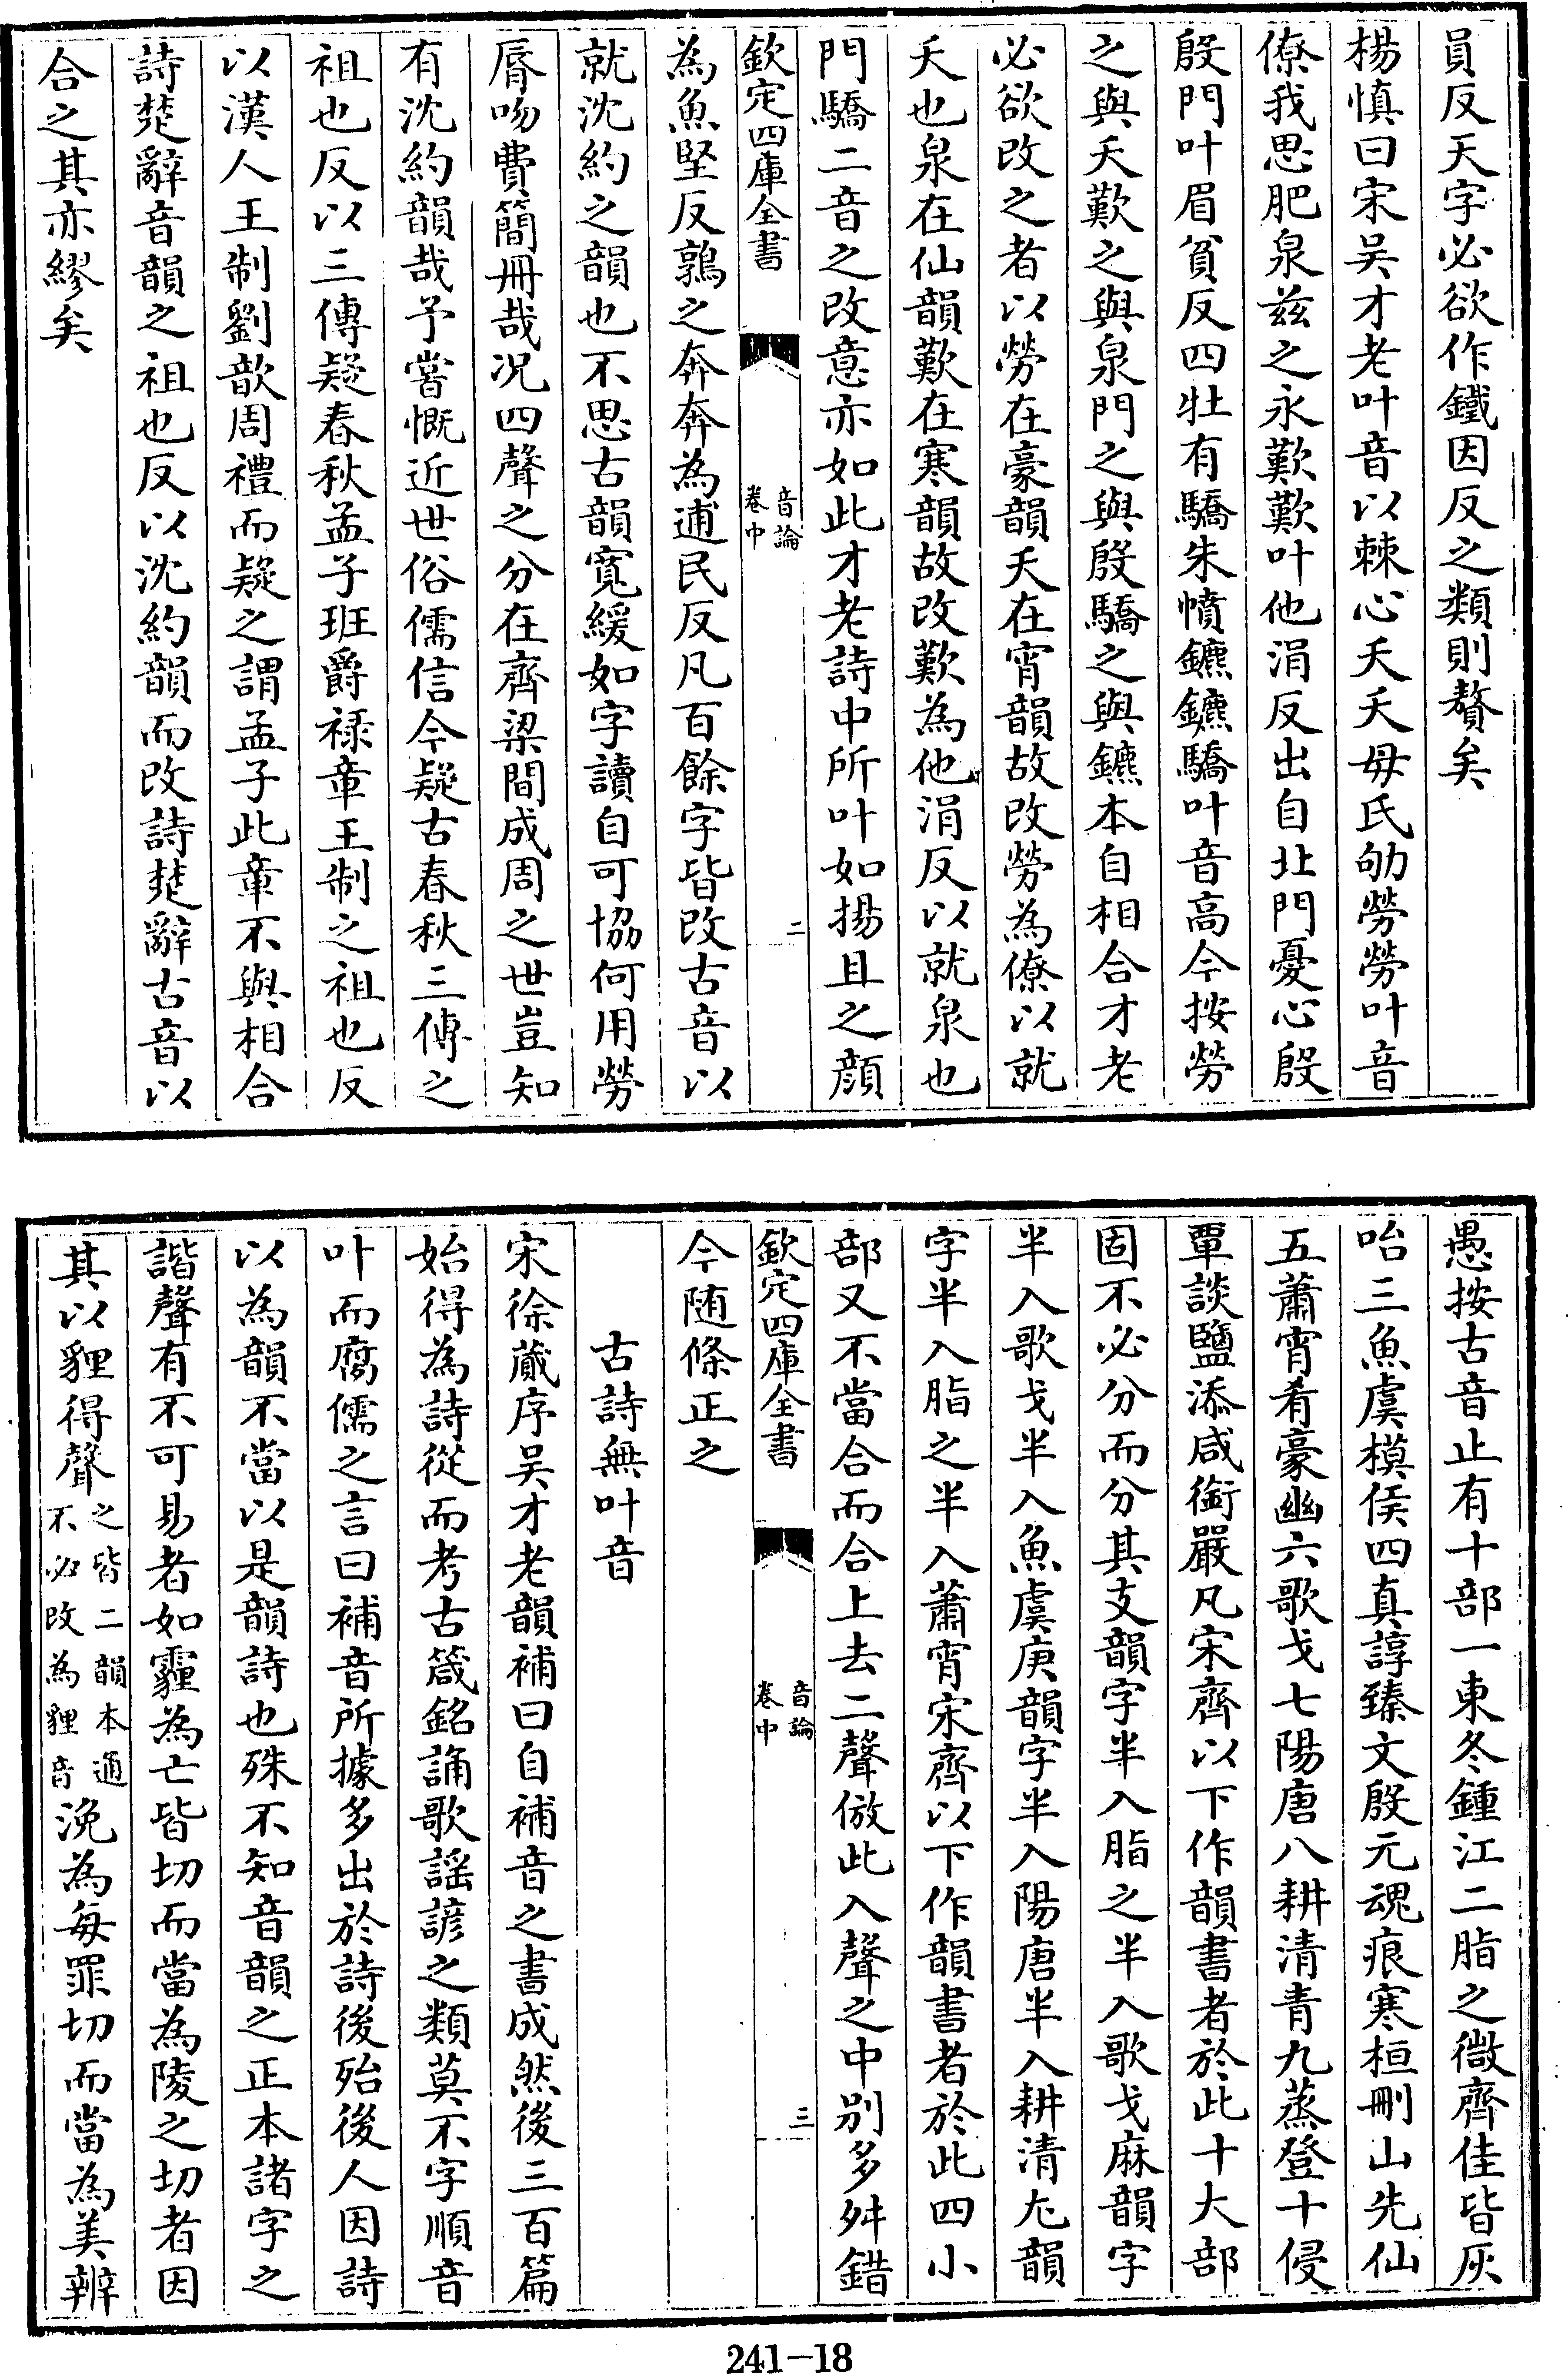 員反天字必欲作鐵因反之類則贅矣
楊慎曰宋吳才老叶音以棘心夭夭毋氏劬勞勞叶音
僚我思肥泉兹之永歎歎叶他涓反出自北門憂心殷
殷門叶眉貧反四牡有驕朱幩鑣鑣驕叶音高今按勞
之與夭歎之與泉門之與殷驕之與鑣本自相合才老
必欲改之者以勞在豪韻夭在宵韻故改勞為僚以就
夭也泉在仙韻歎在寒韻故改歎為他涓反以就泉也
門驕二音之改意亦如此才老詩中所叶如揚且之顔
欽定四庫全書
音論
卷中
二
為魚堅反鶉之奔奔為逋民反凡百餘字皆改古音以
就沈約之韻也不思古韻寬緩如字讀自可協何用勞
脣吻費簡冊哉况四聲之分在齊梁間成周之世豈知
有沈約韻哉予嘗慨近世俗儒信今疑古春秋三傳之
祖也反以三傳疑春秋孟子班爵禄章王制之祖也反
以漢人王制劉歆周禮而疑之謂孟子此章不與相合
詩楚辭音韻之祖也反以沈約韻而改詩楚辭古音以
合之其亦繆矣
愚按古音止有十部一東冬鍾江二脂之微齊佳皆灰
咍三魚虞模侯四真諄臻文殷元魂痕寒桓刪山先仙
五蕭宵肴豪幽六歌戈七陽唐八耕清青九蒸登十侵
覃談鹽添咸銜嚴凡宋齊以下作韻書者於此十大部
固不必分而分其支韻字半入脂之半入歌戈麻韻字
半入歌戈半入魚虞庚韻字半入陽唐半入耕清尤韻
字半入脂之半入蕭宵宋齊以下作韻書者於此四小
部又不當合而合上去二聲倣此入聲之中別多舛錯
欽定四庫全書
音論
卷中
三
今随條正之
古詩無叶音
宋徐蕆序吴才老韻補曰自補音之書成然後三百篇
始得為詩從而考古箴銘誦歌謡諺之類莫不字順音
叶而腐儒之言曰補音所據多出於詩後殆後人因詩
以為韻不當以是韻詩也殊不知音韻之正本諸字之
諧聲有不可易者如霾為亡皆切而當為陵之切者因
其以貍得聲之皆二韻本通不必改為貍音浼為每罪切而當為美辨
241-18